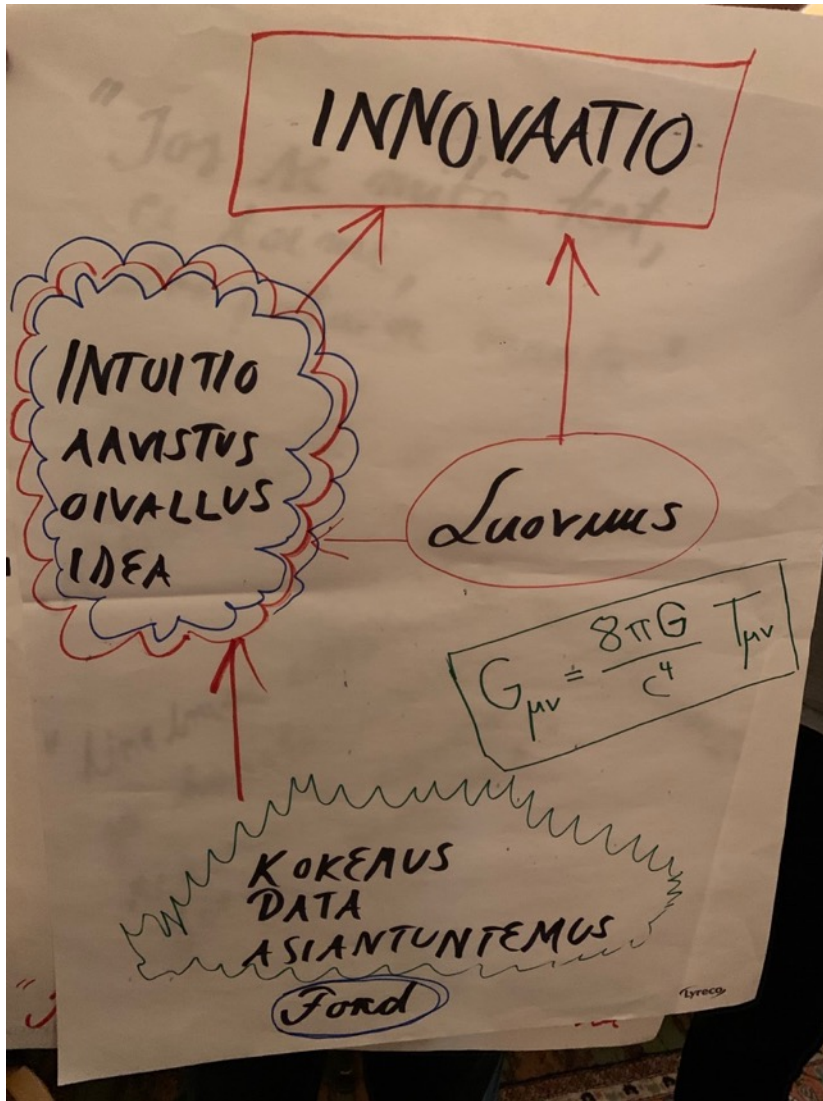 INNOVAATIO
INTUITIO
AAVISTUS
OIVALLUS
IDEA
Luovuus
Gμν = 8πG/c⁴ Tμν
KOKEMUS
DATA
ASIANTUNTEMUS
Ford
Lyreco